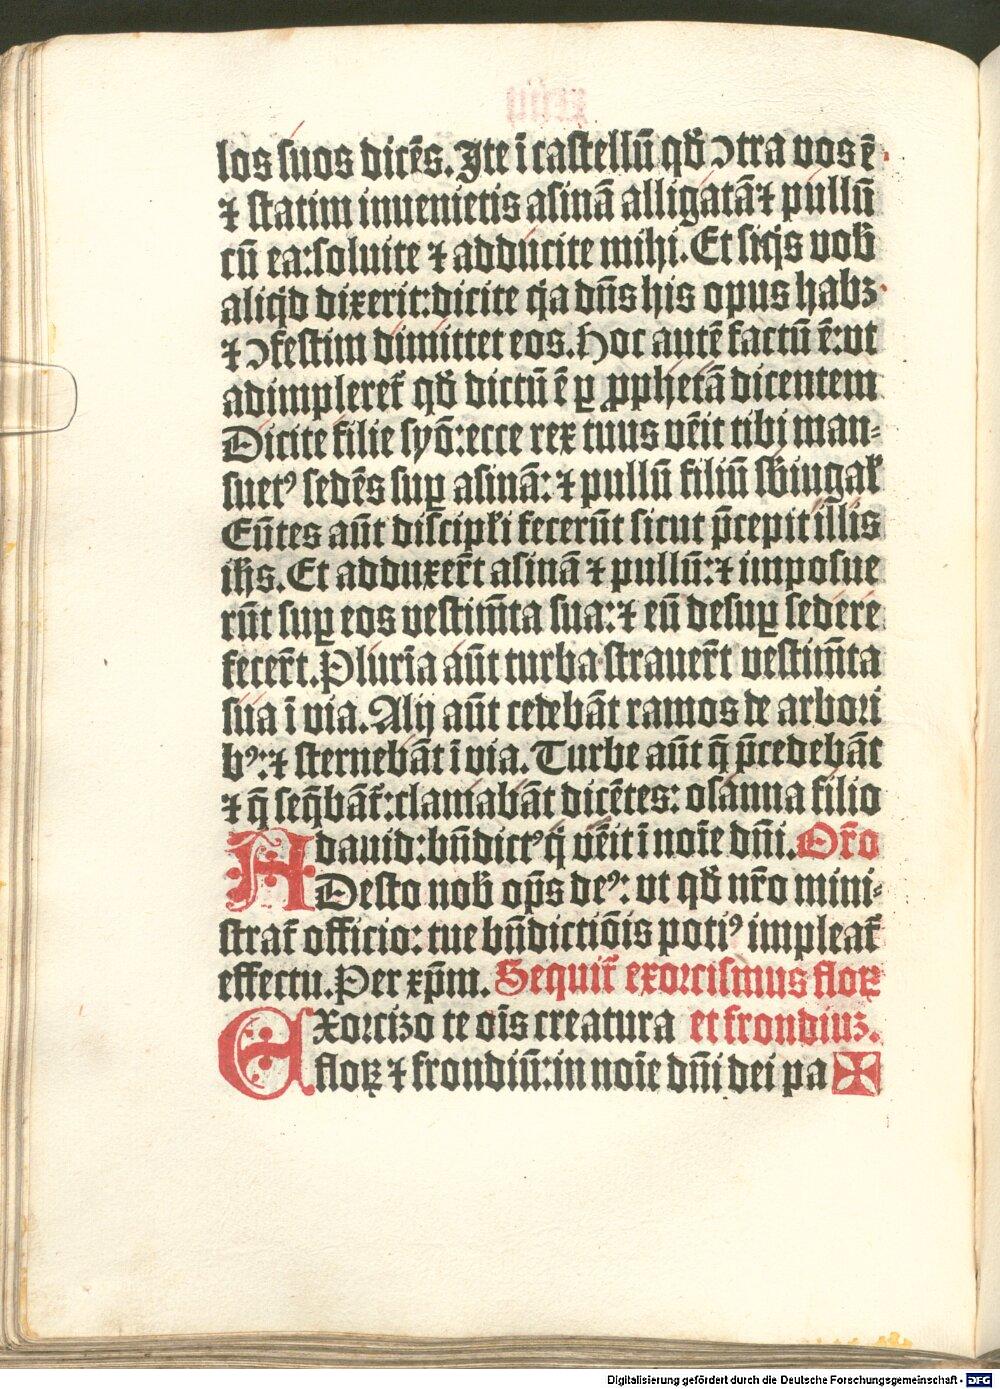 los suos dicēs. Ite ī castellū qđ ↄtra vos ē
⁊ statim inuenietis asinā alligatā ⁊ pullū
cū ea: soluite ⁊ adducite mihi. Et siq̇s vob̄
aliq̇d dixerit: dicite q̇a dn̄s his opus habꝫ
⁊ ↄfestim dimittet eos. Hoc autē factū ē: vt
adimpleret᷑ qđ dictū ē ꝑ ꝓphetā dicentem
Dicite filie syō: ecce rex tuus vēit tibi man-
suetꝰ sedēs suꝑ asinā: ⁊ pullū filiū sb̄iugał
Eūtes aūt discipłi fecerūt sicut p̄cepit illis
ih̄s. Et adduxer̄t asinā ⁊ pullū: ⁊ imposue
rūt suꝑ eos vestim̄ta sua: ⁊ eū desuꝑ sedere
fecer̄t. Plurīa aūt turba strauer̄t vestim̄ta
sua ī via. Alij aūt cedebāt ramos de arbori
bꝰ: ⁊ sternebāt ī via. Turbe aūt q̄ p̄cedebāt
⁊ q̄ seq̄bāt᷑: clamabāt dicētes: osanna filio
dauid: bn̄dictꝰ q̇ vēit ī noīe dn̄i. Or̄o
ADesto nob̄ op̄s deꝰ: vt qđ nr̄o mini-
strat᷑ officio: tue bn̄dictiōis potiꝰ impleat᷑
effectu. Per xp̄m. Sequit᷑ exorcismus floꝝ
EXorcizo te oīs creatura et frondiuꝫ.
floꝝ ⁊ frondiū: in noīe dn̄i dei pa ✠
Digitalisierung gefördert durch die Deutsche Forschungsgemeinschaft - DFG